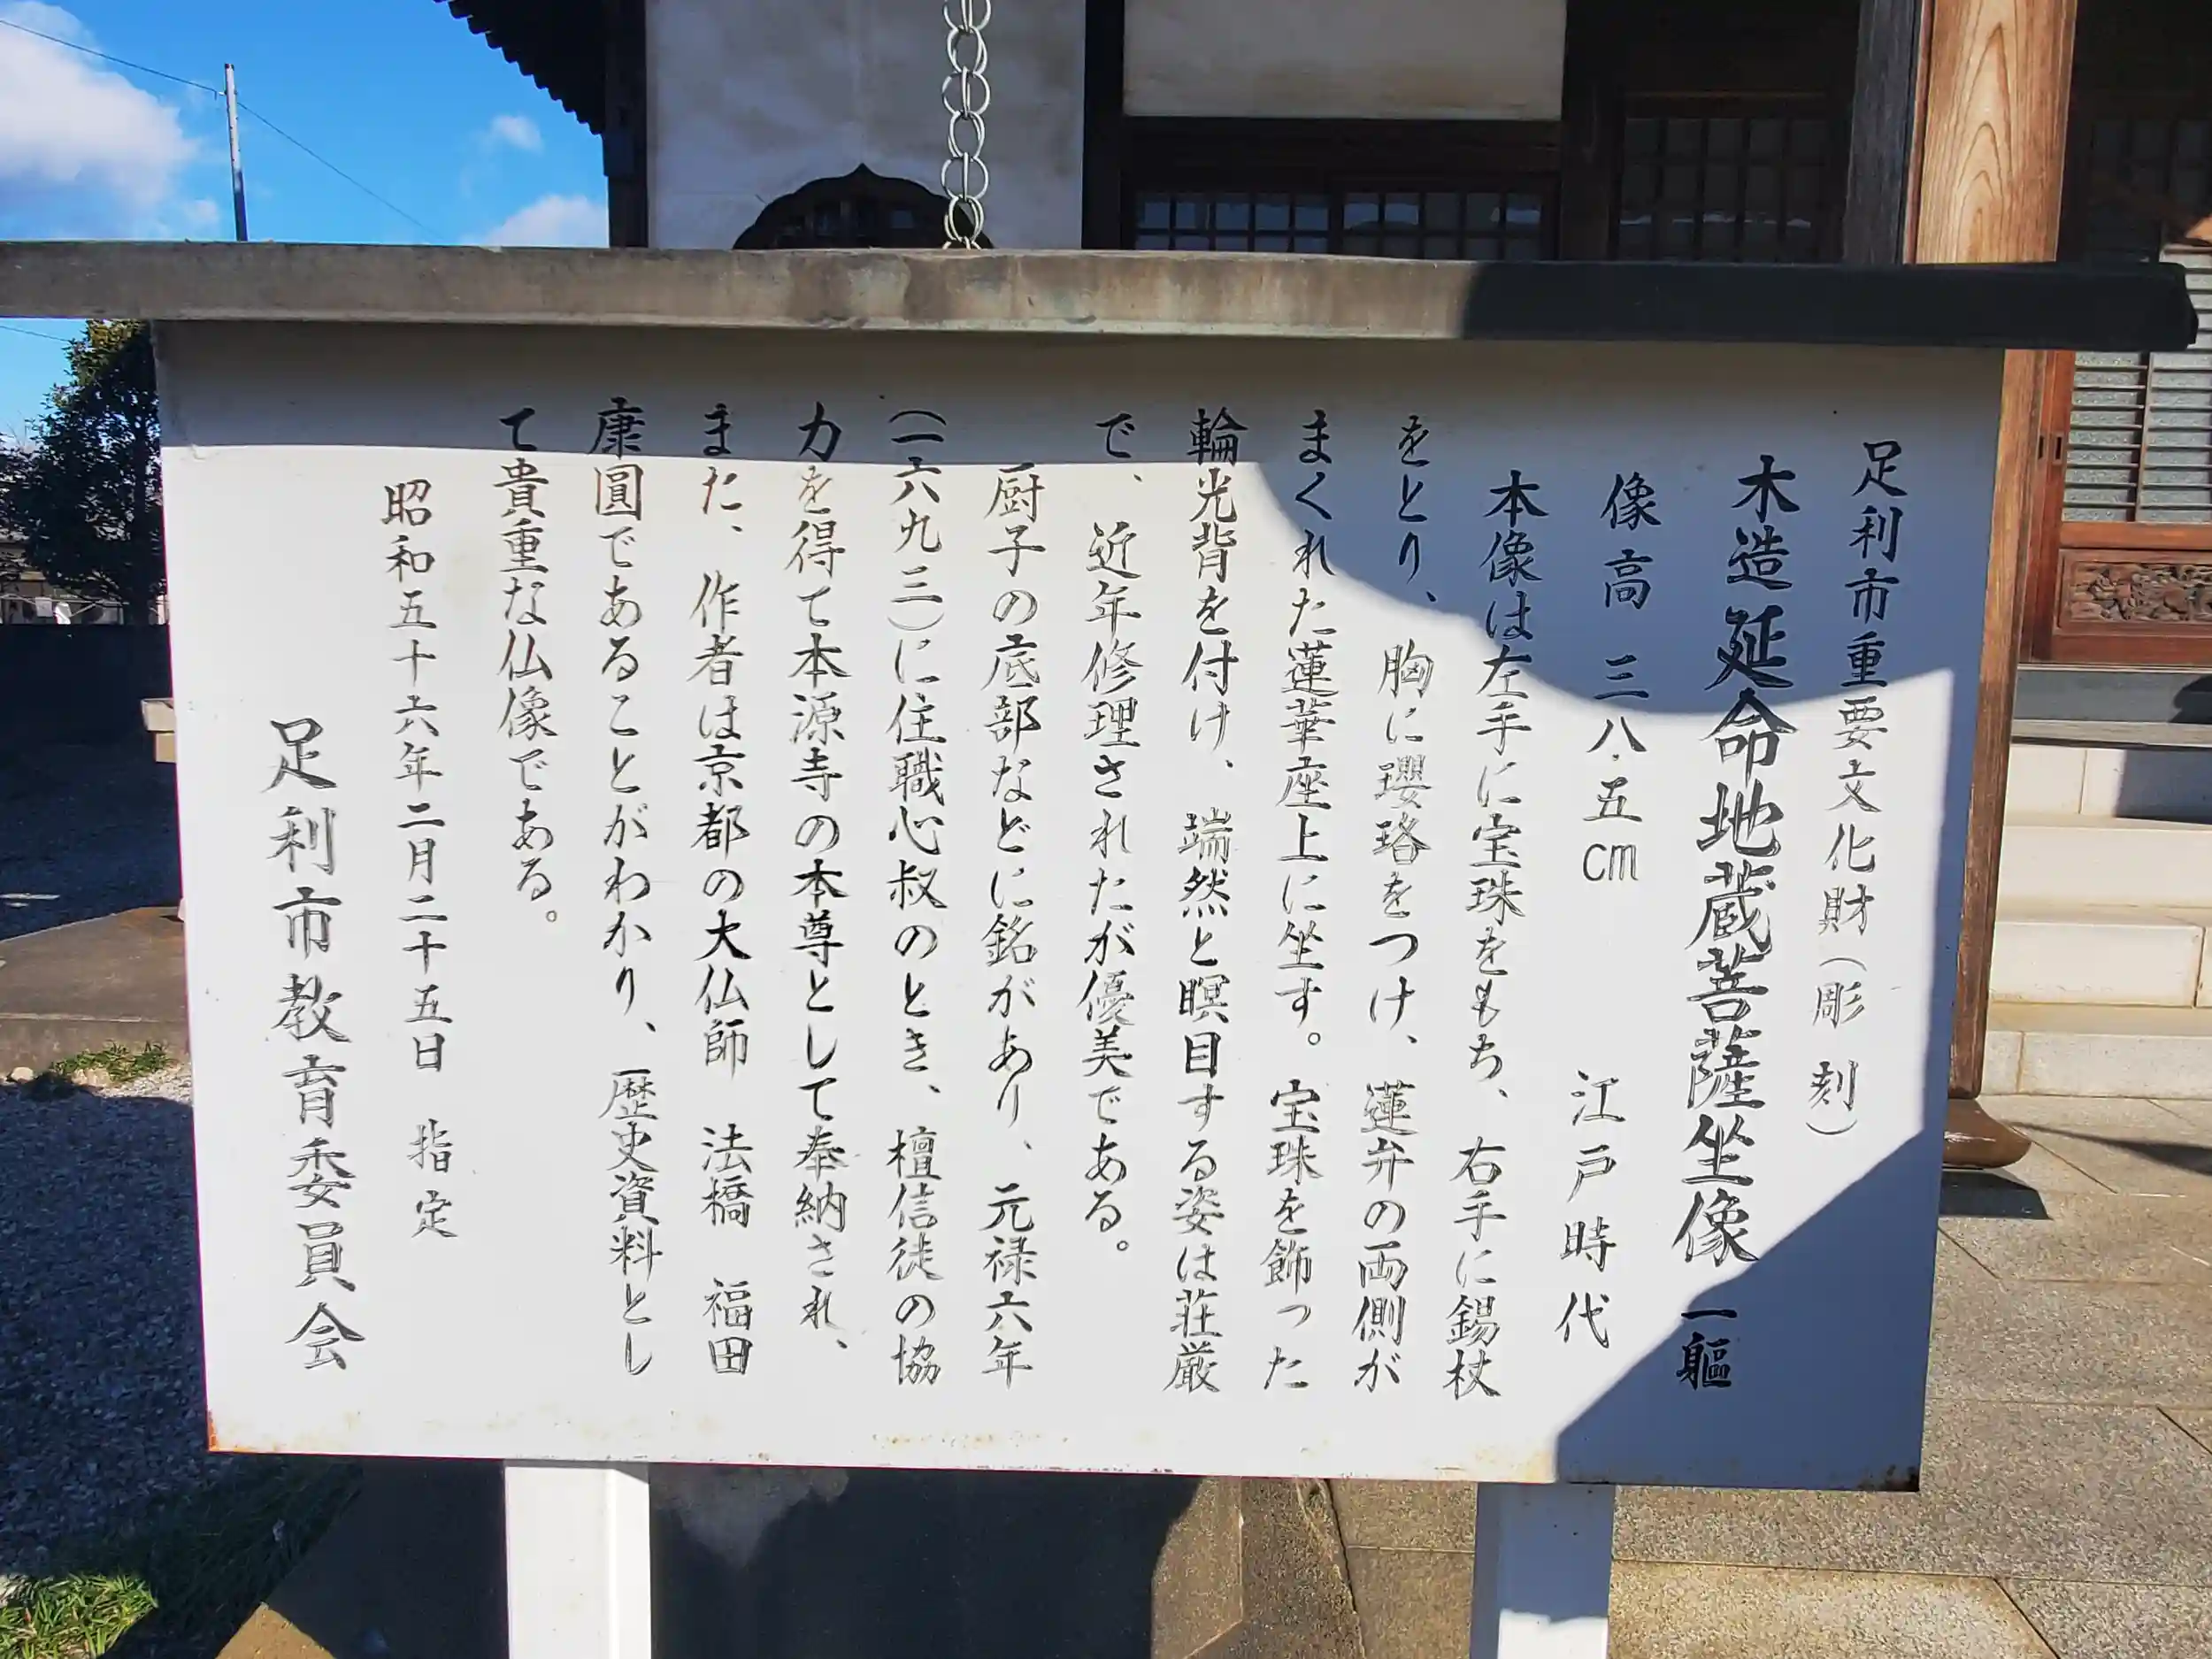 足利市重要文化財（彫刻）
木造延命地蔵菩薩坐像 一軀
像高 三八・五㎝ 江戸時代
本像は左手に宝珠をもち、右手に錫杖
をとり、胸に瓔珞をつけ、蓮弁の両側が
まくれた蓮華座上に坐す。宝珠を飾った
輪光背を付け、端然と瞑目する姿は荘厳
で、近年修理されたが優美である。
厨子の底部などに銘があり、元禄六年
（一六九三）に住職心叔のとき、檀信徒の協
力を得て本源寺の本尊として奉納され、
また、作者は京都の大仏師 法橋 福田
康圓であることがわかり、歴史資料とし
て貴重な仏像である。
昭和五十六年二月二十五日 指定
足利市教育委員会